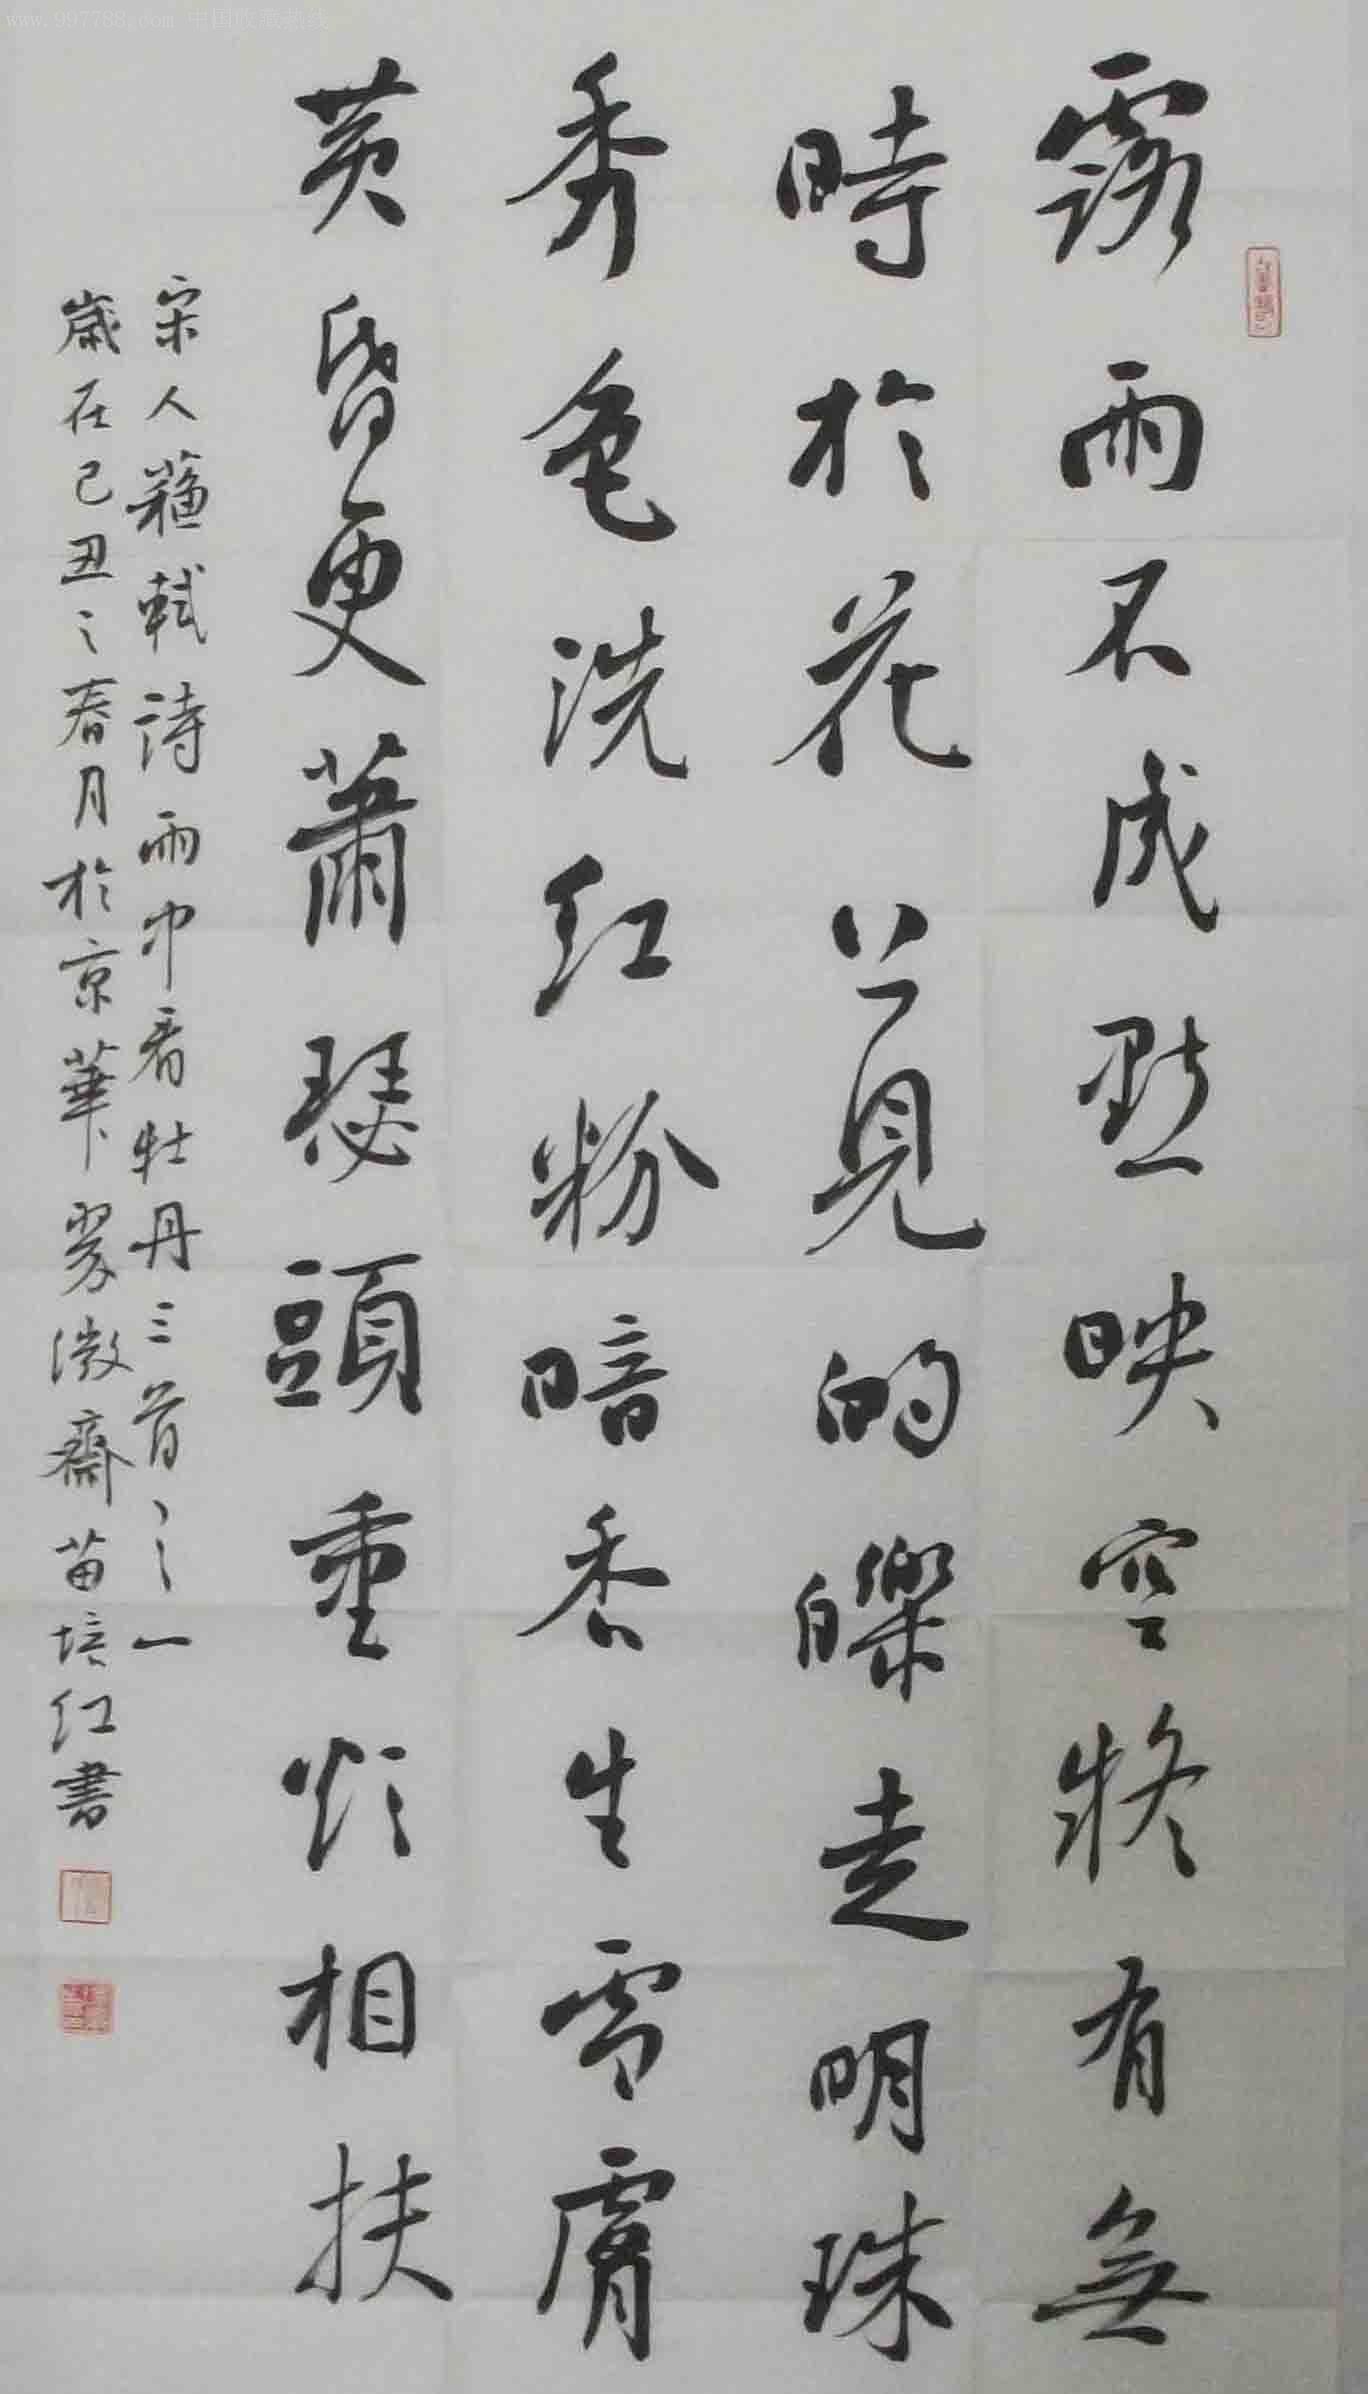 www.997788.com 中国收藏热线
霧雨不成點映空疑有無
時於花上見的皪走明珠
秀色洗红粉暗香生雪膚
黄昏更蕭瑟頭重欲相扶
宋人蘇軾詩雨中看牡丹三首之一
歲在己丑之春月於京華翠微齋苗培红書